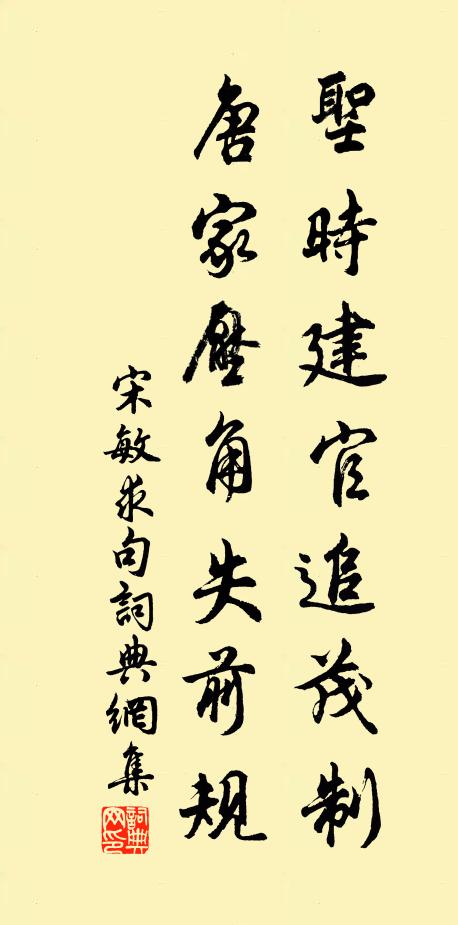 聖時建官追茂制
唐家壓角失前規
宋敏求句詞典網集
詞典网印